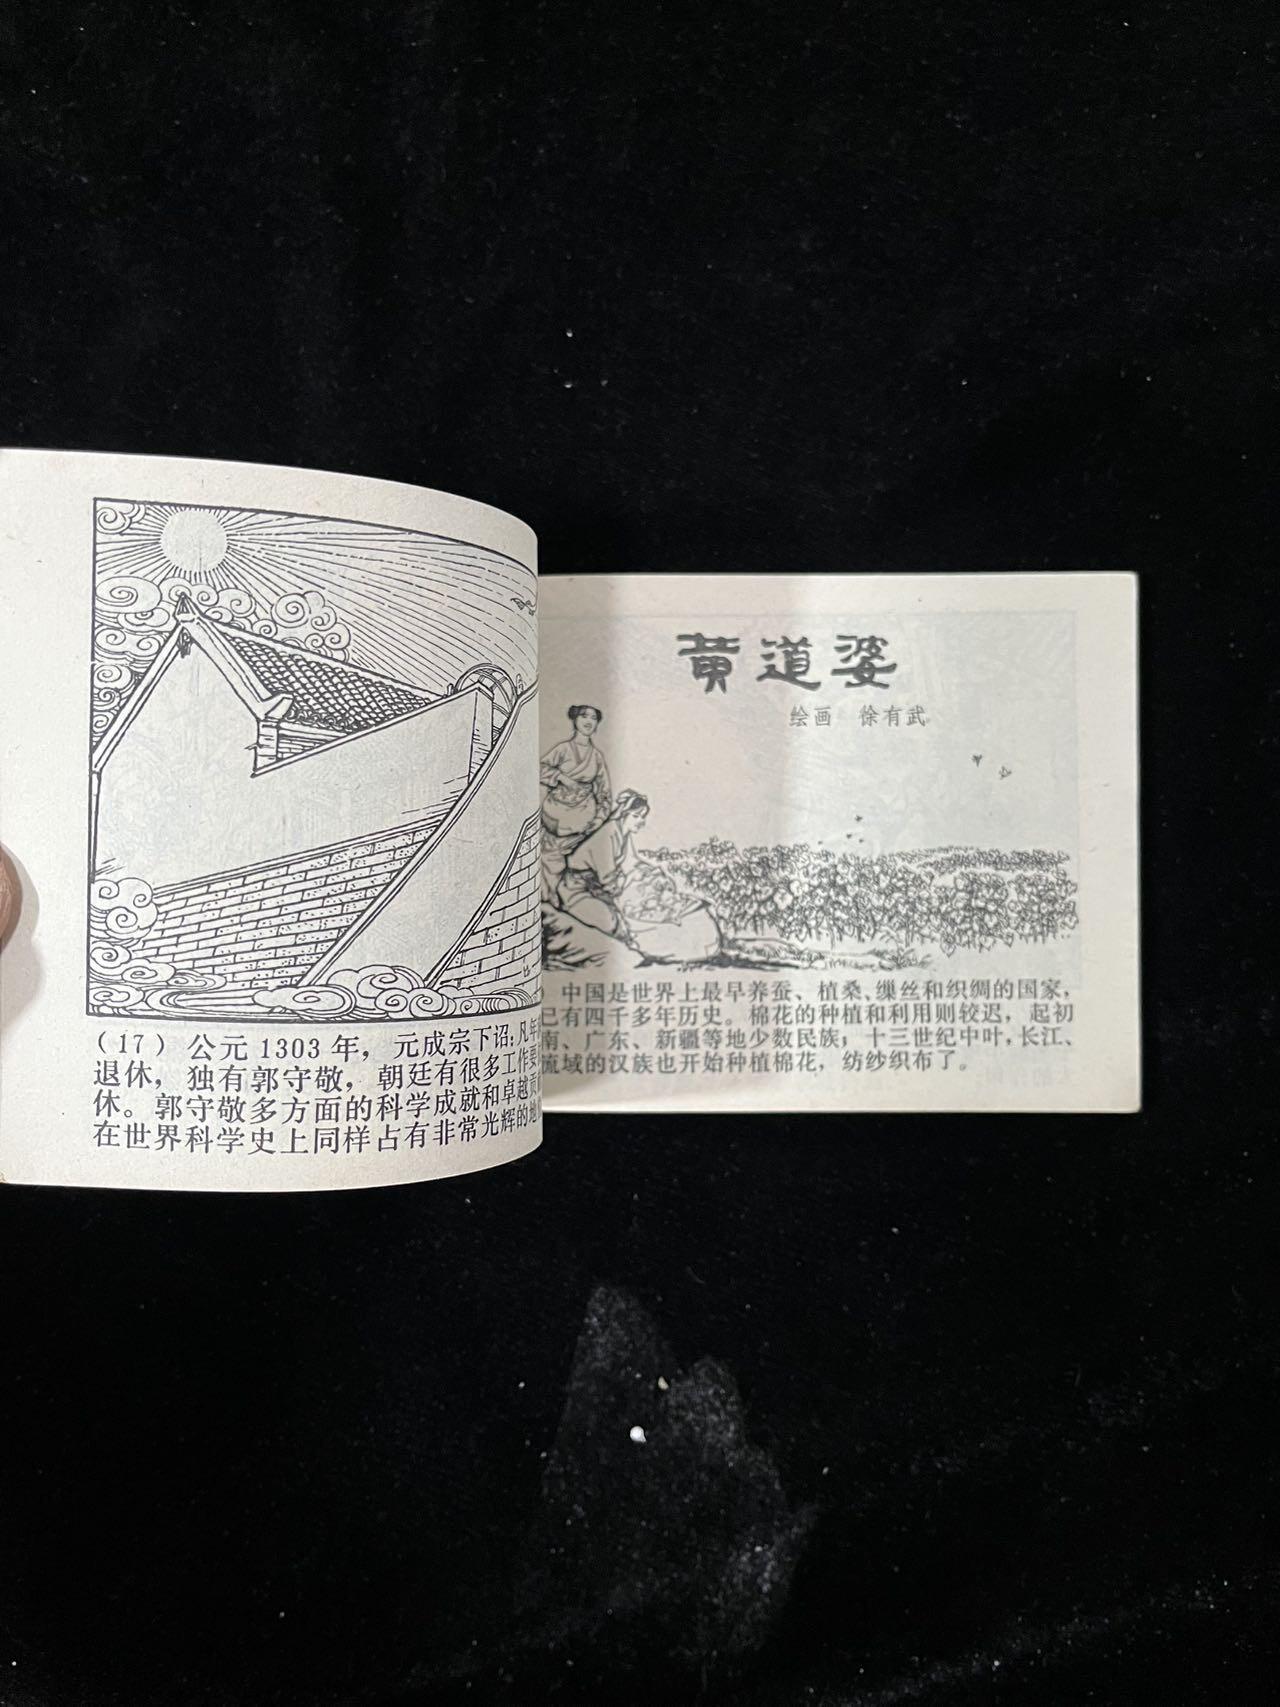 （17）公元1303年，元成宗下诏：凡年
退休，独有郭守敬，朝廷有很多工作要
休。郭守敬多方面的科学成就和卓越贡
在世界科学史上同样占有非常光辉的地
黄道婆
绘画 徐有武
中国是世界上最早养蚕、植桑、缫丝和织绸的国家，
已有四千多年历史。棉花的种植和利用则较迟，起初
南、广东、新疆等地少数民族；十三世纪中叶，长江、
流域的汉族也开始种植棉花，纺纱织布了。